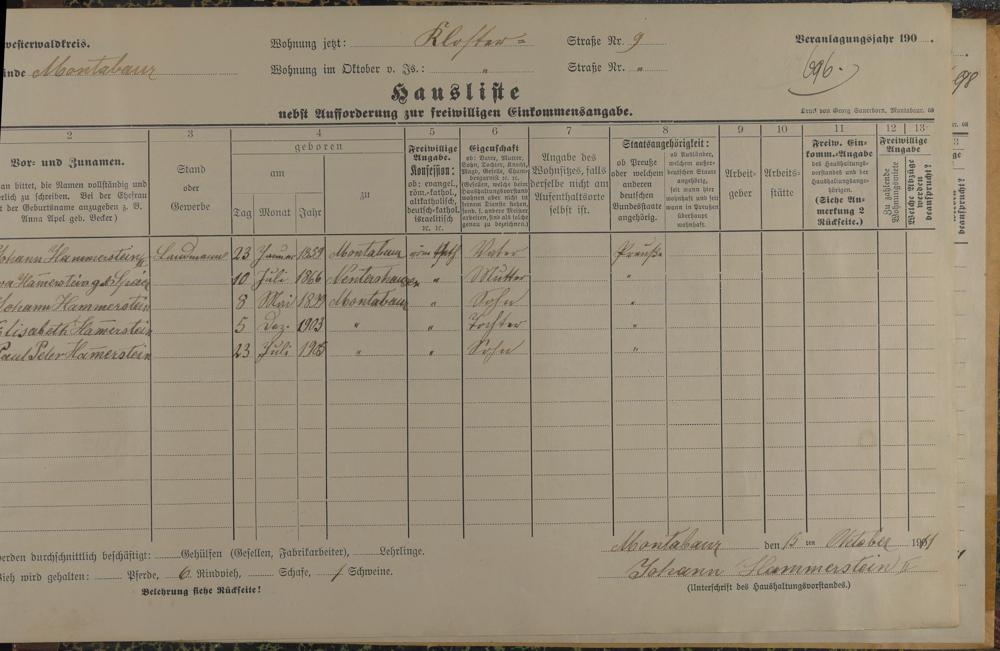 westerwaldkreis.
Wohnung jetzt: Kloster= Straße Nr. 9
Veranlagungsjahr 190
inde Montabaur
Wohnung im Oktober v. Js.: " Straße Nr. "
696.
98
Hausliste
nebst Aufforderung zur freiwilligen Einkommensangabe.
Druck von Georg Sauerborn, Montabaur. 08
2 3 4 5 6 7 8 9 10 11 12 13
Vor- und Zunamen.
an bittet, die Namen vollständig und
erlich zu schreiben. Bei der Ehefrau
t der Geburtsname anzugeben z. B.
Anna Apel geb. Becker)
Stand
oder
Gewerbe
geboren
am
zu
Tag Monat Jahr
Freiwillige
Angabe.
Konfession:
ob: evangel.,
röm.-kathol.,
altkatholisch,
deutsch-kathol.
israelitisch
ꝛc. ꝛc.
Eigenschaft
ob: Vater, Mutter,
Sohn, Tochter, Knecht,
Magd, Geselle, Cham-
bergarnist ꝛc. ꝛc.
(Gesellen, welche beim
Haushaltungsvorstand
wohnen aber nicht in
seinem Dienste stehen,
sond. f. andere Meister
arbeiten, sind als solche
genau zu bezeichnen.)
Angabe des
Wohnsitzes, falls
derselbe nicht am
Aufenthaltsorte
selbst ist.
Staatsangehörigkeit:
ob Preuße
oder welchem
anderen
deutschen
Bundesstaate
angehörig.
ob Ausländer,
welchem außer-
deutschen Staate
angehörig,
seit wann hier
wohnhaft und seit
wann in Preußen
überhaupt
wohnhaft.
Arbeit-
geber
Arbeits-
stätte
Freiw. Ein-
komm.-Angabe
des Haushaltungs-
vorstandes und der
Haushaltungsange-
hörigen.
(Siehe An-
merkung 2
Rückseite.)
Freiwillige
Angabe
Zu zahlende
Wohnungsmiete
Welche Abzüge
werden
beansprucht?
Johann Hammerstein Landmann 23 Januar 1859 Montabaur röm. kath. Vater Preuße
10 Juli 1866 Nentershausen " Mutter "
Johann Hammerstein 8 Mai 1899 Montabaur " Sohn "
Elisabeth Hamerstein 5 Dez. 1903 " " Tochter "
Paul Peter Hamerstein 23 Juli 1905 " " Sohn "
erden durchschnittlich beschäftigt: Gehülfen (Gesellen, Fabrikarbeiter), Lehrlinge.
Vieh wird gehalten: Pferde, 6 Rindvieh, Schafe, 1 Schweine.
Belehrung siehe Rückseite!
Montabaur den 15ten Oktober 1911
Johann Hammerstein
(Unterschrift des Haushaltungsvorstandes.)